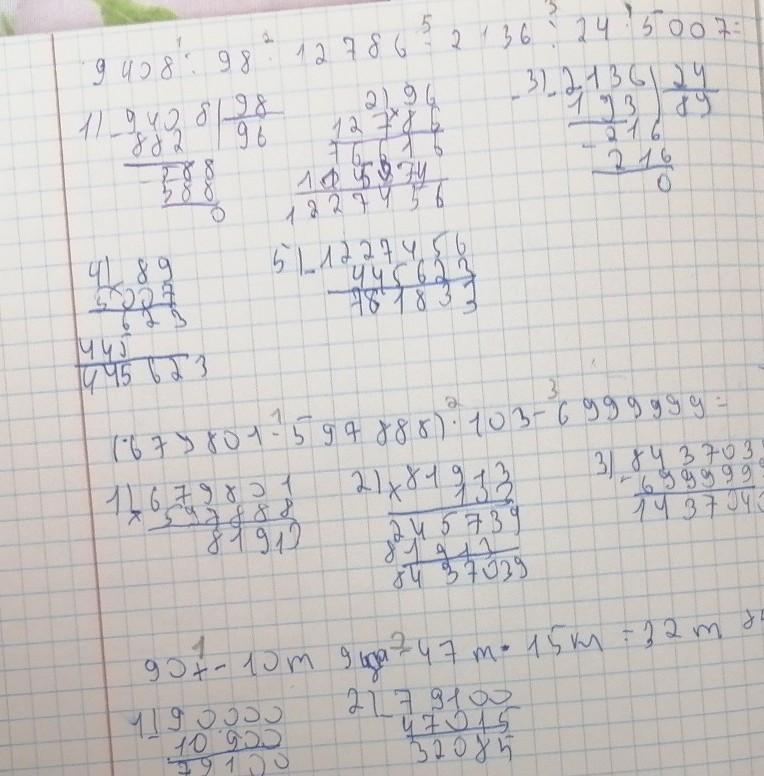 9408 : 98 · 12786 - 2136 : 24 · 5007 =
1) 9408 | 98
882 | 96
588
588
0
2) 96
12786
76616
114974
1227456
3) 2136 | 24
193 | 89
216
216
0
4) 89
5007
623
445
445623
5) 1227456
445623
781833
(679801 - 597888) · 103 - 6999999 =
1) 679801
597888
81913
2) × 81913
103
245739
81913
8437039
3) 843703
699999
143704
90т - 10т 9ц - 47т 15кг = 32т
1) 90000
10900
79100
2) 79100
47015
32085